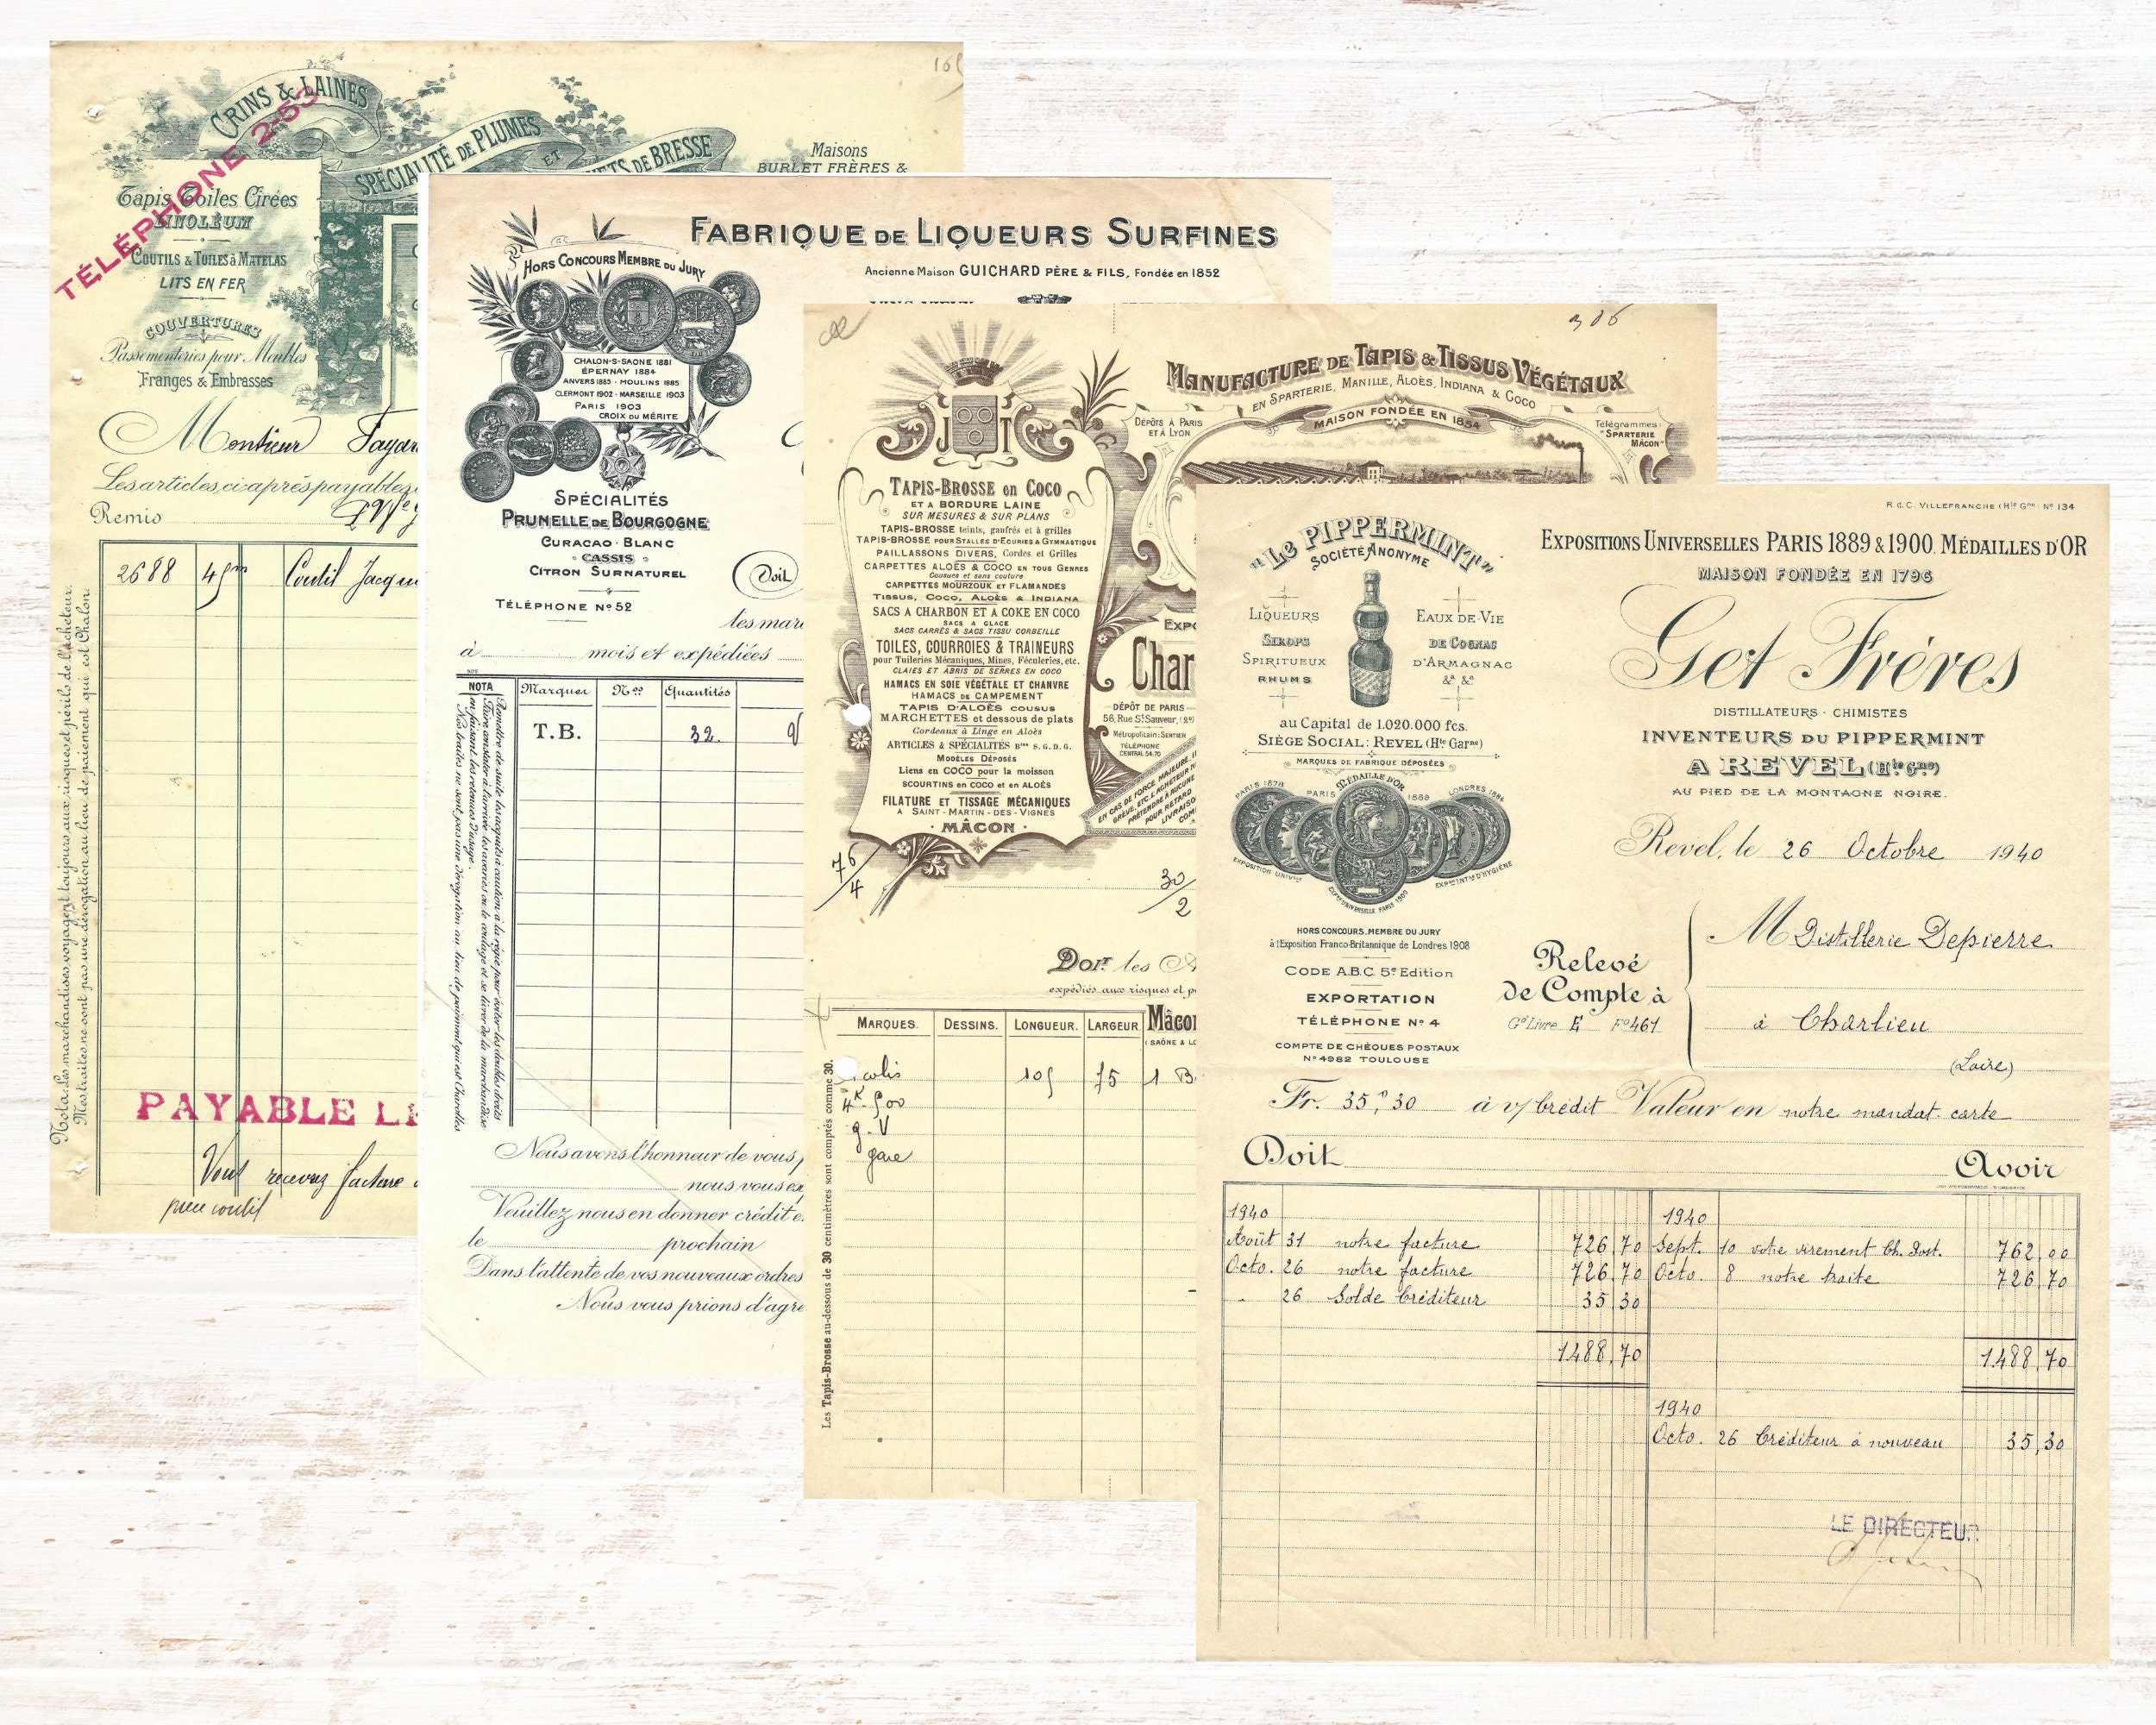 165
CRINS & LAINES
SPÉCIALITÉ DE PLUMES
ET
DE BRESSE
TÉLÉPHONE 2-53
Maisons
BURLET FRÈRES &
Tapis Toiles Cirées
LINOLÉUM
COUTILS & TOILES à MATELAS
LITS EN FER
COUVERTURES
Passementeries pour Meubles
Franges & Embrasses
Monsieur Fayar
Les articles ci-après payables
Remis
2688 45m Coutil Jacqu
Nota les marchandises voyagent toujours aux risques et périls de l'acheteur.
Mes traites ne sont pas une dérogation au lieu de paiement qui est Chalon.
PAYABLE LE
Vous recevez facture
pièce coutil
FABRIQUE DE LIQUEURS SURFINES
Ancienne Maison GUICHARD PÈRE & FILS, Fondée en 1852
HORS CONCOURS MEMBRE DU JURY
CHALON-S-SAONE 1881
ÉPERNAY 1884
ANVERS 1885 - MOULINS 1885
CLERMONT 1902 - MARSEILLE 1903
PARIS 1903
CROIX DU MÉRITE
SPÉCIALITÉS
PRUNELLE DE BOURGOGNE
CURACAO - BLANC
CASSIS
CITRON SURNATUREL
TÉLÉPHONE N° 52
Doit
les mar
à mois et expédiées
NOTA
Marques Nos Quantités
T.B. 32
Nos traites ne sont pas une dérogation au lieu de paiement qui est Charolles
Nous avons l'honneur de vous
nous vous
Veuillez nous en donner crédit e
le prochain
Dans l'attente de vos nouveaux ordres
Nous vous prions d'agré
306
MANUFACTURE DE TAPIS & TISSUS VÉGÉTAUX
EN SPARTERIE, MANILLE, ALOÈS, INDIANA & COCO
MAISON FONDÉE EN 1854
DÉPÔTS À PARIS
ET À LYON
Télégrammes:
"SPARTERIE
MÂCON"
J T
TAPIS-BROSSE en COCO
ET A BORDURE LAINE
SUR MESURES & SUR PLANS
TAPIS-BROSSE teints, gaufrés et à grilles
TAPIS-BROSSE POUR STALLES D'ÉCURIES & GYMNASTIQUE
PAILLASSONS DIVERS, Cordes et Grilles
CARPETTES ALOÈS & COCO EN TOUS GENRES
Cousues et sans couture
CARPETTES MOURZOUK ET FLAMANDES
TISSUS, COCO, ALOÈS & INDIANA
SACS A CHARBON ET A COKE EN COCO
SACS A GLACE
SACS CARRÉS & SACS TISSU CORBEILLE
TOILES, COURROIES & TRAINEURS
pour Tuileries Mécaniques, Mines, Féculeries, etc.
CLAIES ET ABRIS DE SERRES EN COCO
HAMACS EN SOIE VÉGÉTALE ET CHANVRE
HAMACS DE CAMPEMENT
TAPIS D'ALOÈS COUSUS
MARCHETTES et dessous de plats
Cordeaux à Linge en Aloès
ARTICLES & SPÉCIALITÉS Btés S.G.D.G.
MODÈLES DÉPOSÉS
Liens en COCO pour la moisson
SCOURTINS en COCO et en ALOÈS
FILATURE ET TISSAGE MÉCANIQUES
A SAINT-MARTIN-DES-VIGNES
MÂCON
EXPO
Char
DÉPÔT DE PARIS
56, Rue St Sauveur, (2e)
Métropolitain: SENTIER
TÉLÉPHONE
CENTRAL 54.70
76/4
30/2
DOIT les
expédiés aux risques et p
MARQUES. DESSINS. LONGUEUR. LARGEUR. Mâcon
(SAÔNE & LO
colis 105 75 1 B
4K 500
g.V
gare
Les Tapis-Brosse au-dessous de 30 centimètres sont comptés comme 30.
R.d.C. VILLEFRANCHE (Hte Gne) N° 134
"Le PIPPERMINT"
SOCIÉTÉ ANONYME
LIQUEURS
SIROPS
SPIRITUEUX
RHUMS
EAUX-DE-VIE
DE COGNAC
D'ARMAGNAC
&a &a
au Capital de 1.020.000 fcs.
SIÈGE SOCIAL: REVEL (Hte Garne)
MARQUES DE FABRIQUE DÉPOSÉES
PARIS 1878
PARIS
MÉDAILLE D'OR
1889
LONDRES 1884
EXPOSITION UNIVlle
UNIVERSELLE PARIS 1900
EXPon INTle D'HYGIÈNE
HORS CONCOURS. MEMBRE DU JURY
à l'Exposition Franco-Britannique de Londres 1908
CODE A.B.C. 5e Edition
EXPORTATION
TÉLÉPHONE N° 4
COMPTE DE CHÈQUES POSTAUX
N° 4982 TOULOUSE
EXPOSITIONS UNIVERSELLES PARIS 1889 & 1900. MÉDAILLES D'OR
MAISON FONDÉE EN 1796
Get Frères
DISTILLATEURS - CHIMISTES
INVENTEURS DU PIPPERMINT
A REVEL (Hte Gne)
AU PIED DE LA MONTAGNE NOIRE.
Revel, le 26 Octobre 1940
Relevé
de Compte à
Gd Livre E F° 461
M Distillerie Depierre
à Charlieu
(Loire)
Fr. 35,30 à v/ Crédit Valeur en notre mandat-carte
Doit Avoir
1940 1940
Août 31 notre facture 726,70 Sept. 10 votre virement Ch. Post. 762,00
Octo. 26 notre facture 726,70 Octo. 8 notre traite 726,70
26 Solde Créditeur 35,30
1488,70 1488,70
1940
Octo. 26 Créditeur à nouveau 35,30
LE DIRECTEUR